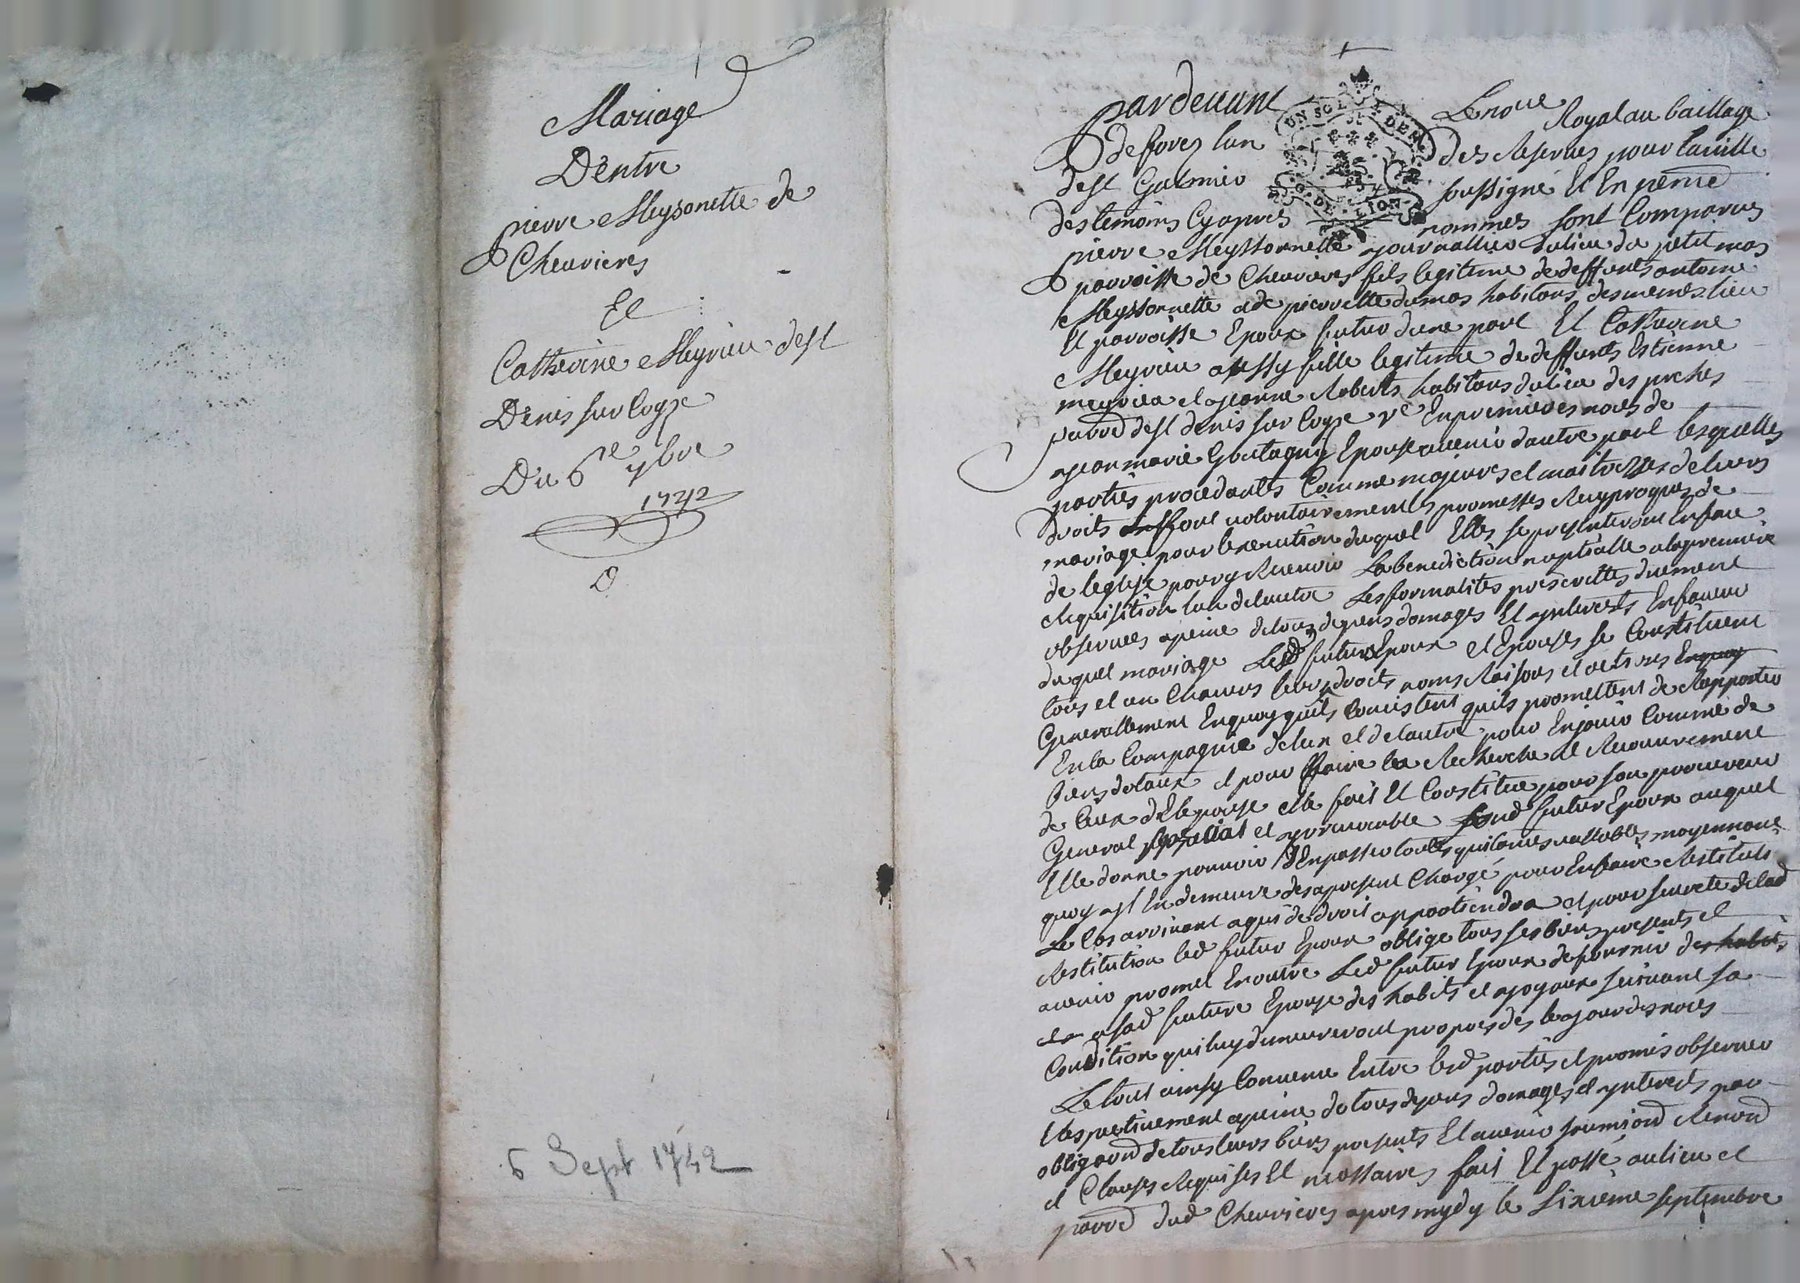 Mariage
D'entre
pierre Meysonette de
Cheuvieres
Et
Catherine Meyrieu de st
Denis sur Coyse
Du 6e 7bre
1742
6 Sept 1742
pardevant Le nore Royal au bailliage
de forez l'un des Reserves pour la ville
de st Galmier soussigné Et En presence
des temoins Cy apres nommes sont Comparus
pierre Meyssonnette journallier du lieu du petit mas
parroisse de Cheuvieres fils legitime de deffunts antoine
Meyssonnette et de pierrette dumas habitans des memes lieu
Et parroisse Epoux futur d'une part Et Catherine
Meyrieu aussy fille legitime de deffunts Estienne
meyrieu et jeanne Roberts habitans du lieu des
parrd de st denis sur Coyse ve En premieres noces de
jean marie Epouse a venir d'autre part lesquelles
parties procedantes Comme majeures et maitresses de leurs
droits ont volontairement promesses Reciproques de
mariage pour l'execution duquel Elles se presenteront En face
de leglise pour y Recevoir La benediction nuptialle a la premiere
Requisition l'un de l'autre Les formalités prescrittes duement
observees a peine de tous depens domages Et interests En faveur
du quel mariage Lesd futurs Epoux et Epouse se Constituent
tous et un Chacuns leurs droits noms Raisons et actions
Generallement En quoy quils Concistent quils promettent de Rapporter
En la Compagnie de l'un et de l'autre pour En jouir Comme de
biens dotaux et pour faire la Recherche et Recouvrement
de Ceux de l'epouse elle fait Et Constitue pour son procureur
General special et irrevocable sond futur Epoux auquel
Elle donne pouvoir d'En passer toutes quitances vallables moyennant
quoy il En demeure des a present Chargé pour En faire Restituti
Le Cas arrivant a qui de droit appartiendra et pour seureté de lad
Restitution led futur Epoux oblige tous ses biens presents et
a venir promet En outre Led futur Epoux de fournir des habits
a sad future Epouse des habits et joyaux suivant sa
Condition qui luy demeureront propres des le jour des noces
Le tout ainsy Convenu Entre lesd parties et promis observer
Respectivement a peine de tous depens domages et interests par
obligaon de tous leurs biens presents Et a venir soumiond Renond
et Clauses Requises Et necessaires fait Et passé au lieu et
parrd dud Cheuvieres apres mydy le Sixieme septembre